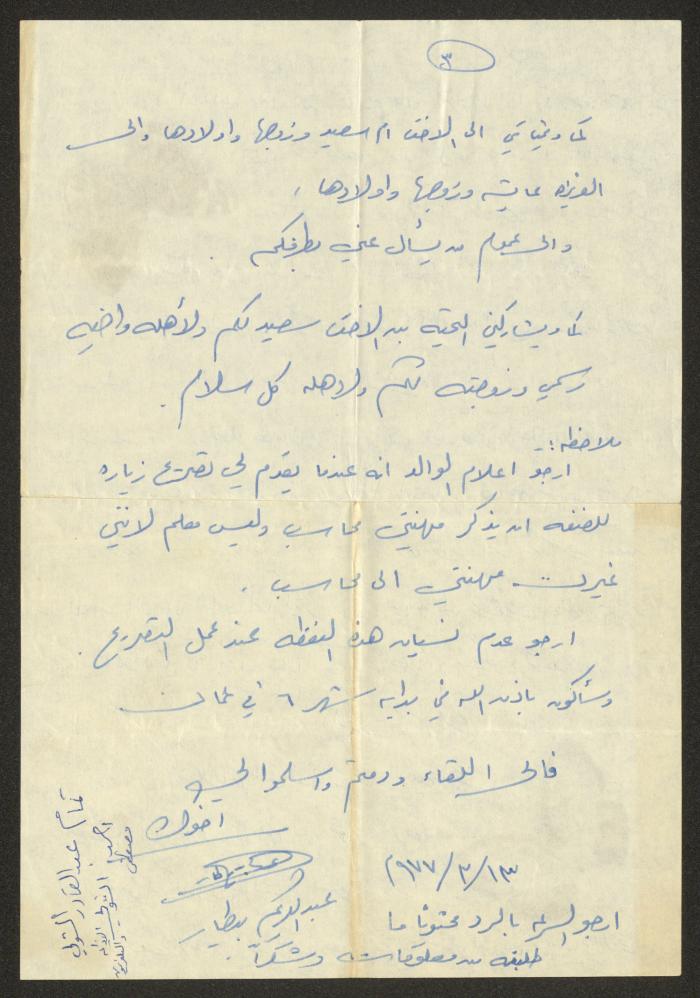 ٣
كما وتمنياتي الى الاخت ام سعيد وزوجها واولادها والى
العزيزه عايشه وزوجها واولادها ،
والى عموم من يسأل عني بطرفكم .
كما ويشاركني التحية ابن الاخت سعيد لكم ولأهله واخيه
رسمي وزوجته لكم ولأهله كل سلام .
ملاحظه :
ارجو اعلام الوالد انه عندما يقدم لي تصريح زياره
للضفه ان يذكر مهنتي محاسب وليس معلم لانني
غيرت مهنتي الى محاسب .
ارجو عدم نسيان هذه النقطه عند عمل التصريح .
وسأكون باذن الله في بداية شهر ٦ في عمان
فالى اللقاء ودمتم واسلموا لي
اخوك
عبد الكريم بيطار
١٩٧٧/٣/١٣
ارجو السرعه بالرد محتويا ما
طلبته من معلومات وشكراً .
تمام عبد القادر الشولي
احمد الشولي
مصطفى